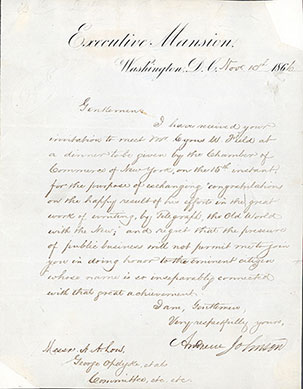 Executive Mansion.
Washington, D. C. Nov. 10th 1866
Gentlemen,
I have received your
invitation to meet Mr Cyrus W. Field at
a dinner to be given by the Chamber of
Commerce of New York, on the 15th instant,
for the purpose of exchanging congratulations
on the happy result of his efforts in the great
work of uniting, by Telegraph, the Old World
with the New; and regret that the pressure
of public business will not permit me to join
you in doing honor to the eminent citizen
whose name is so inseparably connected
with that great achievement.
I am, Gentlemen
Very respectfully yours,
Andrew Johnson
Messrs A. A. Low,
George Opdyke, et al.
Committee, etc. etc.